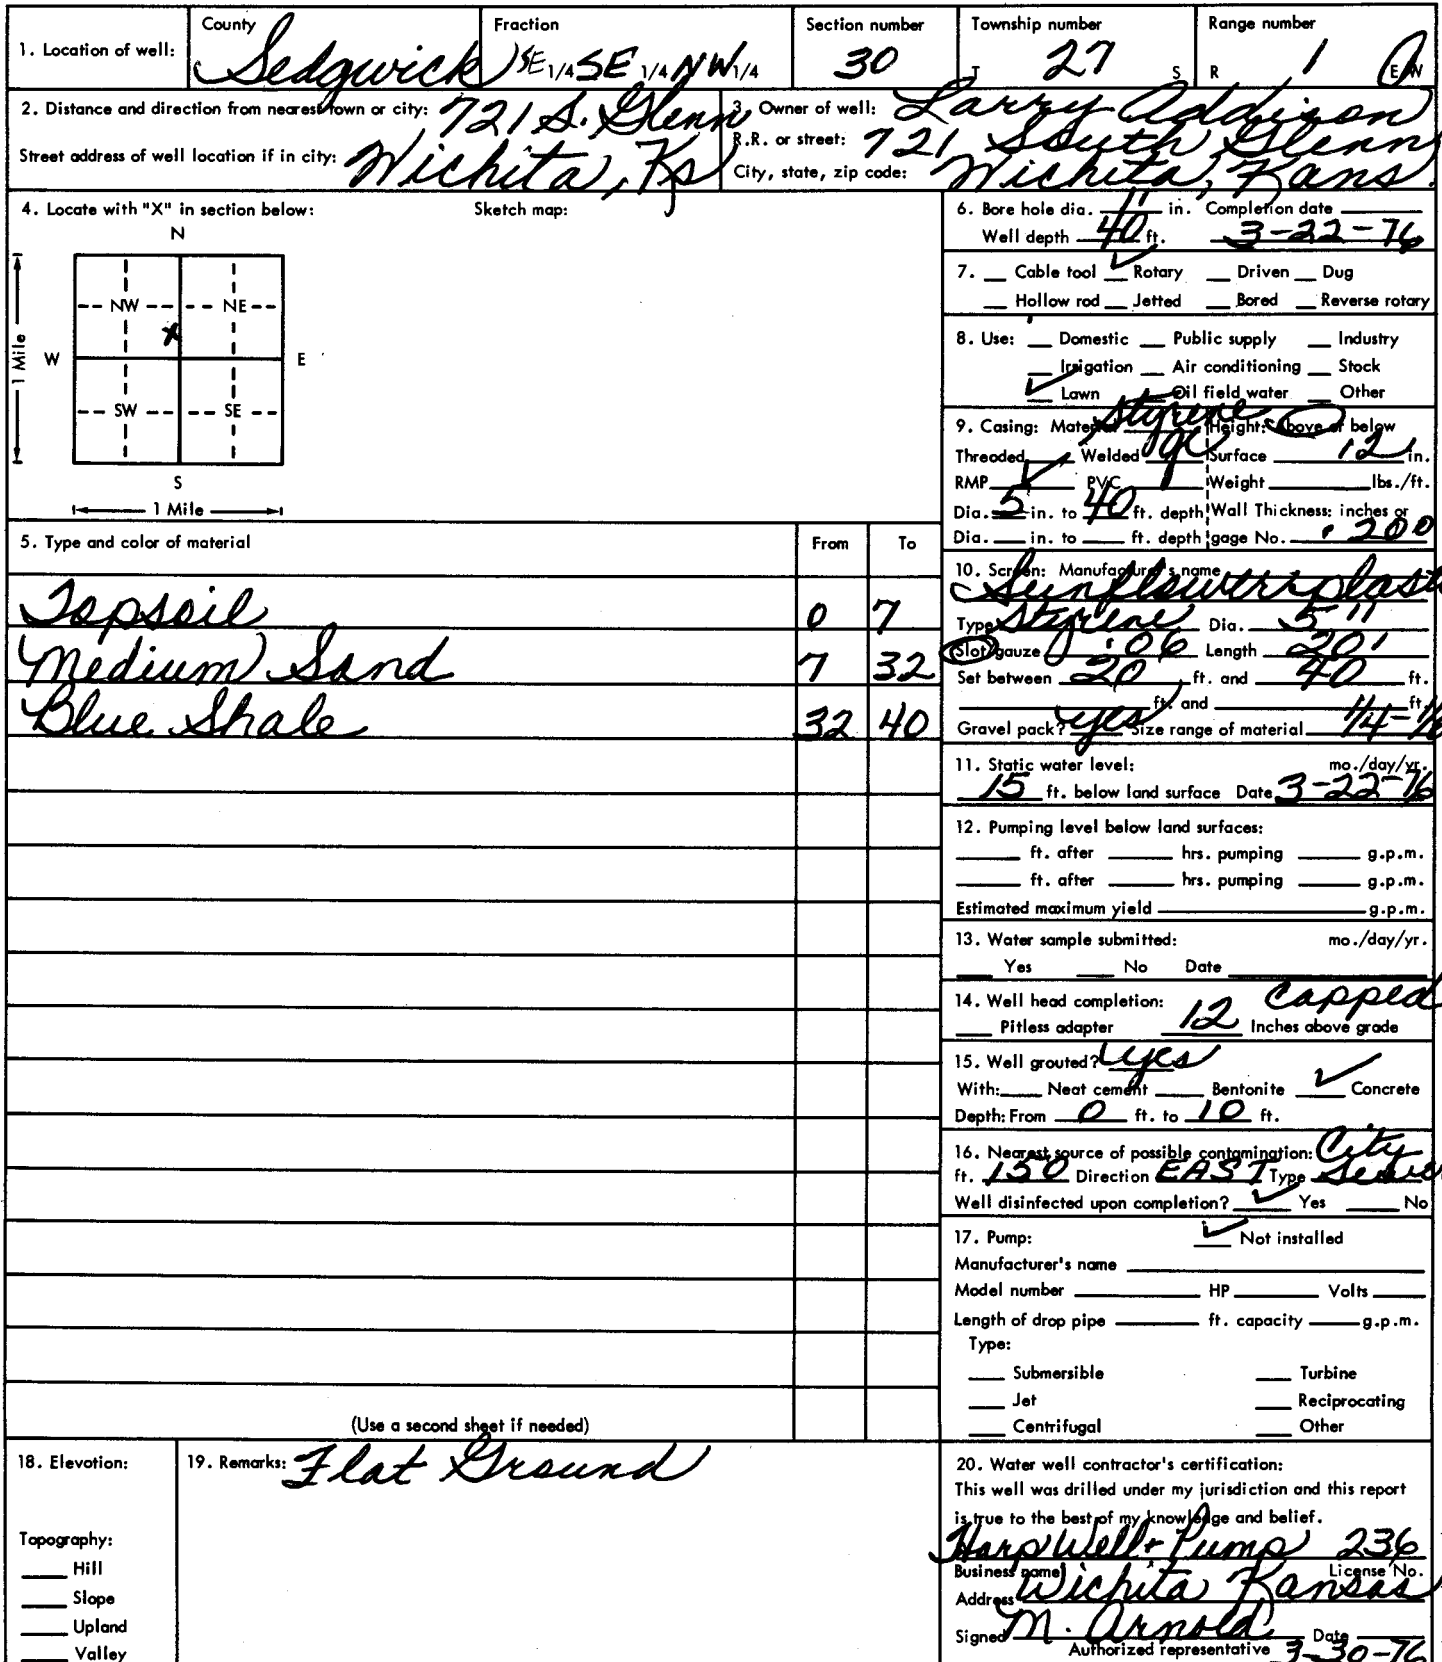 1. Location of well: County Sedgwick Fraction SE 1/4 SE 1/4 NW 1/4 Section number 30 Township number T 27 S Range number R 1 E/W
2. Distance and direction from nearest town or city: 721 S. Glenn
Street address of well location if in city: Wichita, Ks
3. Owner of well: Larry Addison
R.R. or street: 721 South Glenn
City, state, zip code: Wichita, Kans.
4. Locate with "X" in section below: Sketch map:
N
NW NE
X
W E
1 Mile
SW SE
S
1 Mile
5. Type and color of material From To
Topsoil 0 7
Medium Sand 7 32
Blue Shale 32 40
(Use a second sheet if needed)
6. Bore hole dia. 11 in. Completion date
Well depth 40 ft. 3-22-76
7. Cable tool ✓ Rotary Driven Dug
Hollow rod Jetted Bored Reverse rotary
8. Use: Domestic Public supply Industry
Irrigation Air conditioning Stock
✓ Lawn Oil field water Other
9. Casing: Material Styrene Height: Above or below
Threaded Welded Surface 12 in.
RMP ✓ PVC Weight lbs./ft.
Dia. 5 in. to 40 ft. depth Wall Thickness: inches or
Dia. in. to ft. depth gage No. .200
10. Screen: Manufacturer's name
Sunflower plast
Type Styrene Dia. 5"
Slot/gauze .06 Length 20'
Set between 20 ft. and 40 ft.
ft. and ft.
Gravel pack? yes Size range of material 1/4-
11. Static water level: mo./day/yr.
15 ft. below land surface Date 3-22-76
12. Pumping level below land surfaces:
ft. after hrs. pumping g.p.m.
ft. after hrs. pumping g.p.m.
Estimated maximum yield g.p.m.
13. Water sample submitted: mo./day/yr.
Yes No Date
14. Well head completion: Capped
Pitless adapter 12 Inches above grade
15. Well grouted? yes
With: Neat cement Bentonite ✓ Concrete
Depth: From 0 ft. to 10 ft.
16. Nearest source of possible contamination: City
ft. 150 Direction EAST Type
Well disinfected upon completion? ✓ Yes No
17. Pump: ✓ Not installed
Manufacturer's name
Model number HP Volts
Length of drop pipe ft. capacity g.p.m.
Type:
Submersible Turbine
Jet Reciprocating
Centrifugal Other
18. Elevation:
Topography:
Hill
Slope
Upland
Valley
19. Remarks: Flat Ground
20. Water well contractor's certification:
This well was drilled under my jurisdiction and this report
is true to the best of my knowledge and belief.
Harp Well + Pump 236
Business name License No.
Address Wichita Kansas
Signed M. Arnold Date
Authorized representative 3-30-76